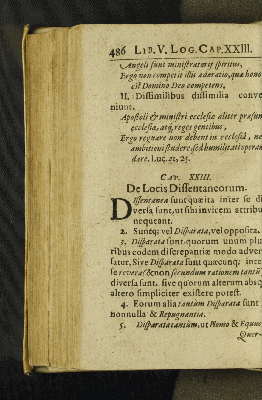 486 LIB. V. LOG. CAP. XXIII.
Angeli sunt ministratorii spiritus,
Ergo non competit illis adoratio, quæ hono
est Domino Deo competens,
II. Dissimilibus dissimilia conve
niunt.
Apostoli & ministri ecclesiæ aliter præsun
ecclesiæ, atq; reges gentibus,
Ergo regnare non debent in ecclesia, ne
ambitioni studere, sed humilitati operam
dare. Luc. 22, 25.
CAP. XXIII.
De Locis Dissentaneorum.
Dissentanea sunt quæ ita inter se di
versa sunt, ut sibi invicem attribui
nequeant.
2. Suntq; vel Disparata, vel opposita.
3. Disparata sunt, quorum unum plu
ribus eodem discrepantiæ modo adver
satur. Sive Disparata sunt quæcunq; inter
se re veras & non secundum rationem tantū
diversa sunt. sive quorum alterum absq
altero simpliciter existere potest.
4. Eorum alia tantùm Disparata sunt
nonnulla & Repugnantia.
5. Disparata tantùm, ut Homo & Equus
Quer-